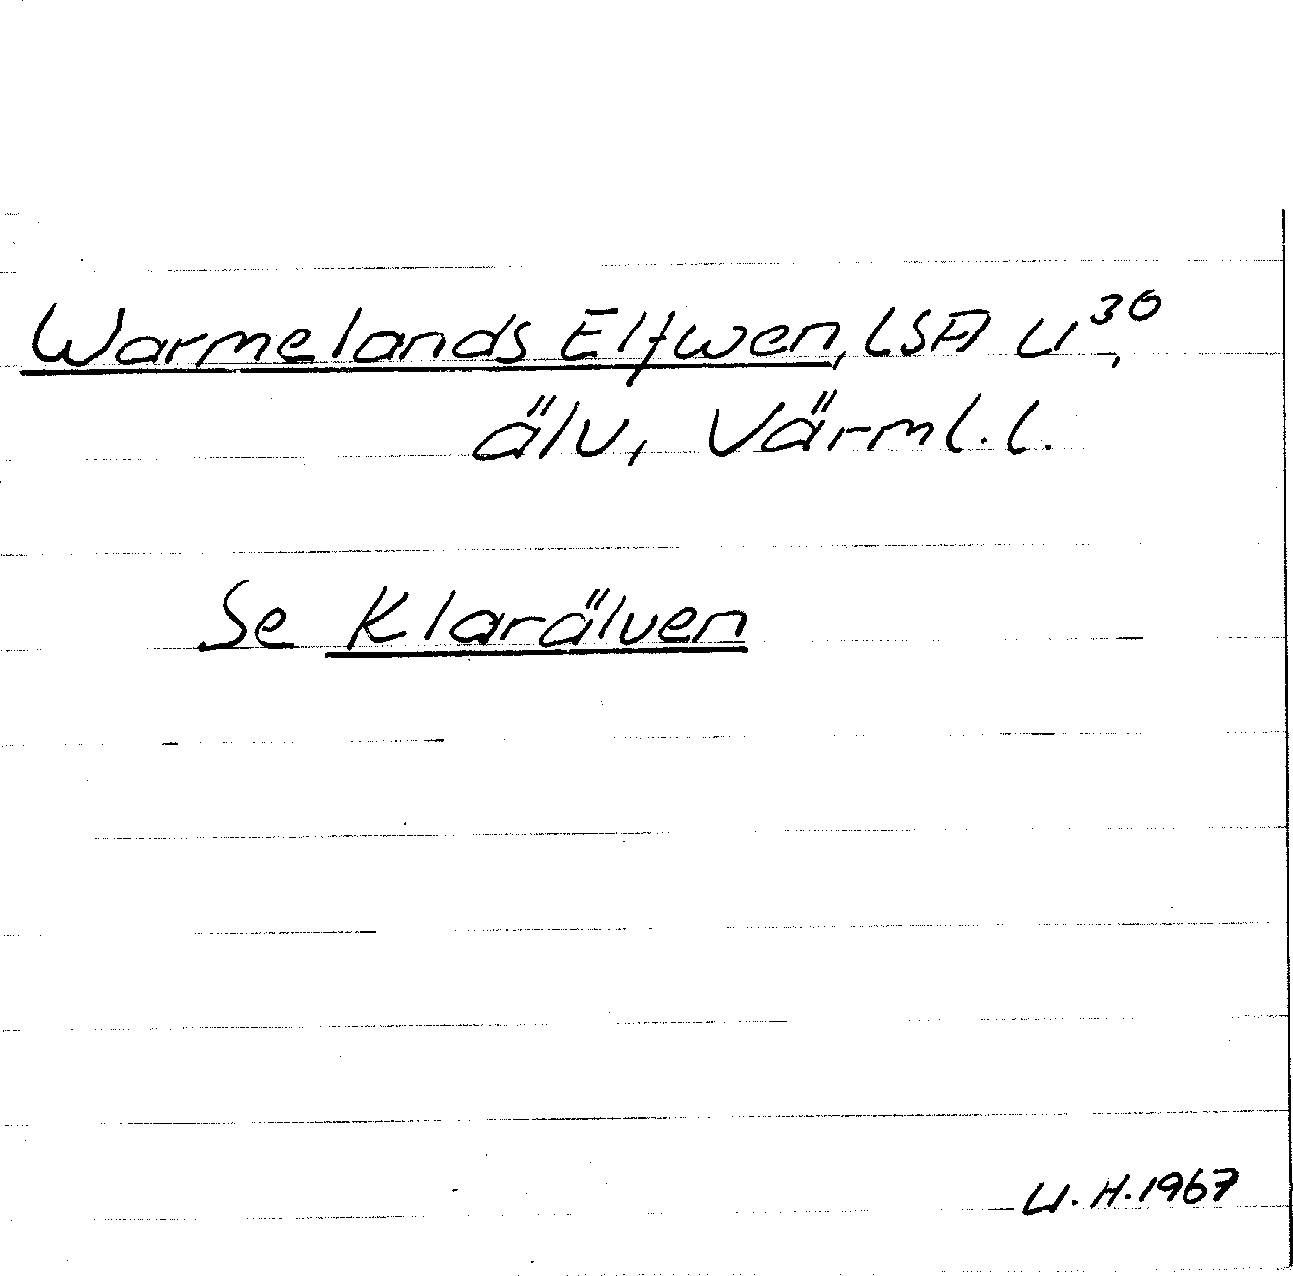 Warmelands Elfwen, LSA U³⁰,
älv, Värml. l.
Se Klarälven
U. H. 1967